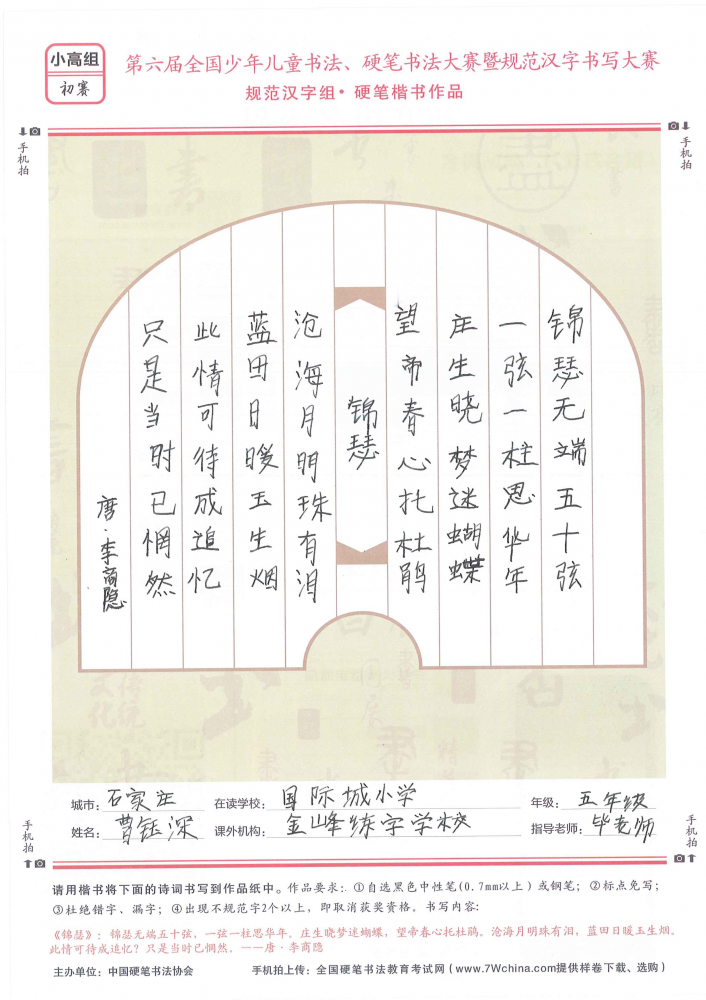 小高组
初赛
第六届全国少年儿童书法、硬笔书法大赛暨规范汉字书写大赛
规范汉字组·硬笔楷书作品
手机拍
手机拍
锦瑟无端五十弦
一弦一柱思华年
庄生晓梦迷蝴蝶
望帝春心托杜鹃
锦瑟
沧海月明珠有泪
蓝田日暖玉生烟
此情可待成追忆
只是当时已惘然
唐·李商隐
城市：石家庄 在读学校：国际城小学 年级：五年级
姓名：曹钰深 课外机构：金峰练字学校 指导老师：毕老师
手机拍
手机拍
请用楷书将下面的诗词书写到作品纸中。作品要求：①自选黑色中性笔(0.7mm以上）或钢笔；②标点免写；
③杜绝错字、漏字；④出现不规范字2个以上，即取消获奖资格。书写内容：
《锦瑟》：锦瑟无端五十弦，一弦一柱思华年。庄生晓梦迷蝴蝶，望帝春心托杜鹃。沧海月明珠有泪，蓝田日暖玉生烟。
此情可待成追忆？只是当时已惘然。——唐·李商隐
主办单位：中国硬笔书法协会 手机拍上传：全国硬笔书法教育考试网（www.7Wchina.com提供样卷下载、选购）